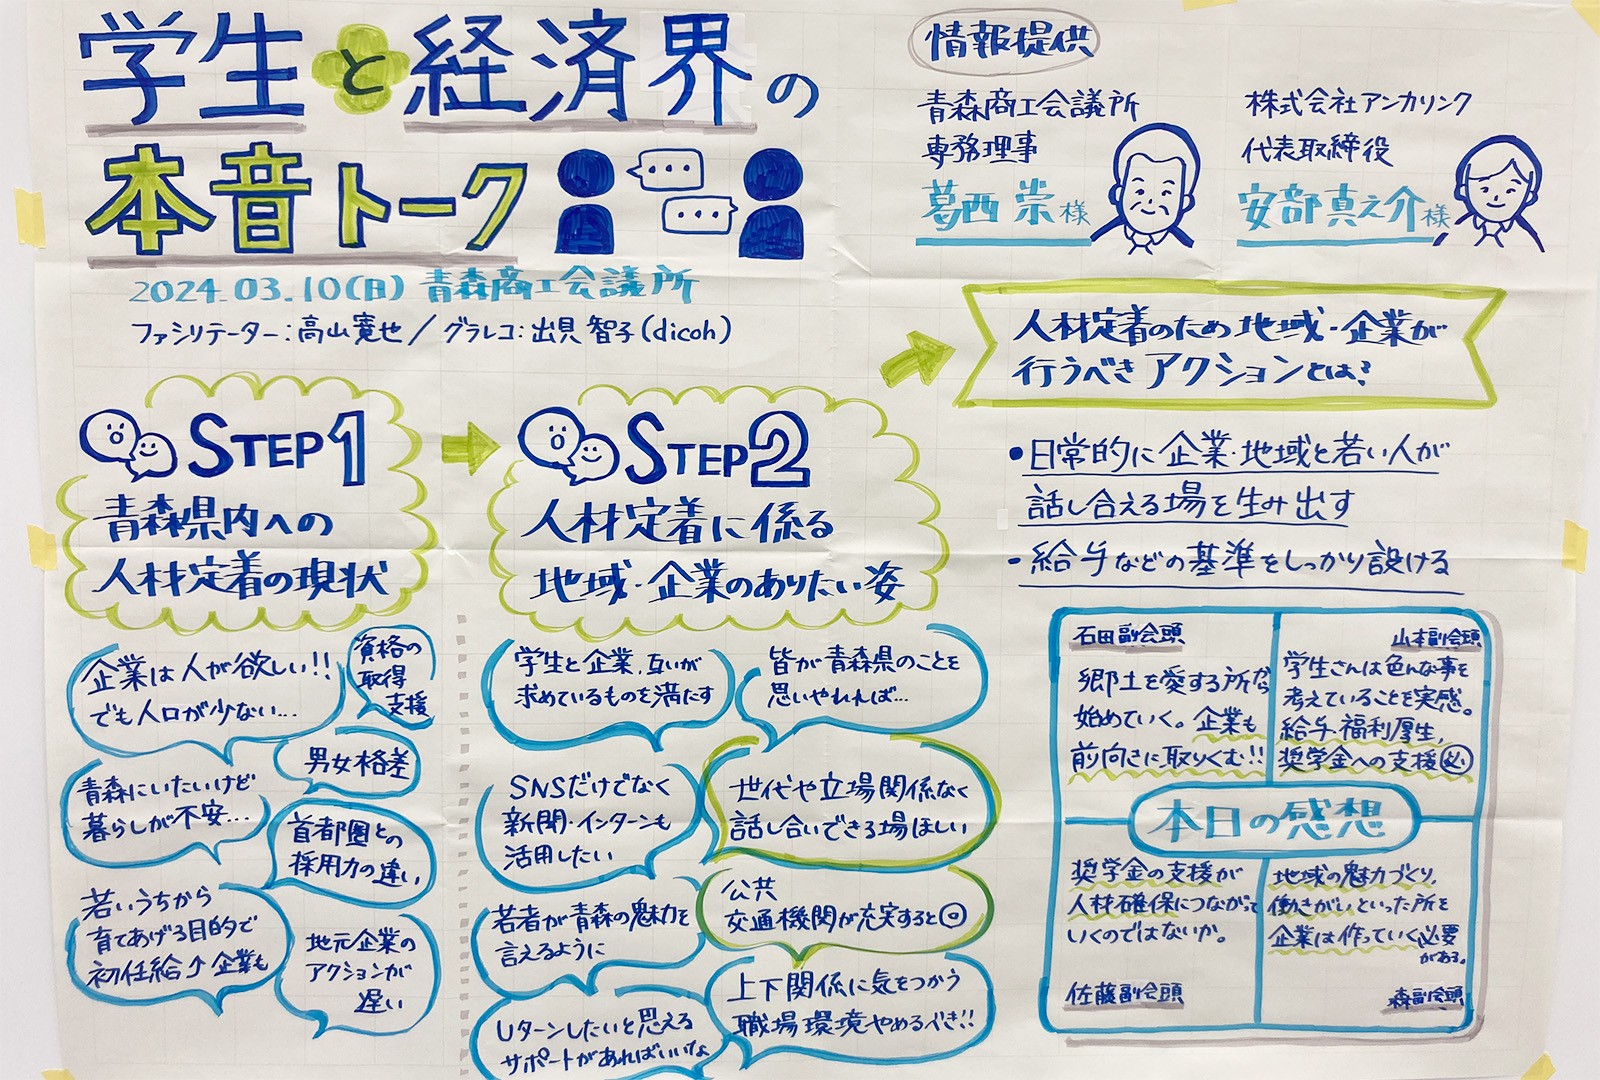 学生と経済界の
本音トーク
2024.03.10(日) 青森商工会議所
ファシリテーター:高山寛也/グラレコ:出貝 智子(dicoh)
情報提供
青森商工会議所
専務理事
葛西 崇様
株式会社アンカリンク
代表取締役
安部真之介様
STEP1
青森県内への
人材定着の現状
企業は人が欲しい!!
でも人口が少ない...
資格の
取得
支援
男女格差
青森にいたいけど
暮らしが不安...
首都圏との
採用力の違い
若いうちから
育てあげる目的で
初任給↑企業も
地元企業の
アクションが
遅い
STEP2
人材定着に係る
地域・企業のありたい姿
学生と企業、互いが
求めているものを満たす
皆が青森県のことを
思いやれれば...
SNSだけでなく
新聞・インターンも
活用したい
世代や立場関係なく
話し合いできる場ほしい
若者が青森の魅力を
言えるように
公共
交通機関が充実すると◎
Uターンしたいと思える
サポートがあればいいな
上下関係に気をつかう
職場環境やめるべき!!
人材定着のため地域・企業が
行うべきアクションとは?
・日常的に企業・地域と若い人が
話し合える場を生み出す
・給与などの基準をしっかり設ける
石田副会頭
郷土を愛する所から
始めていく。企業も
前向きに取りくむ!!
山本副会頭
学生さんは色んな事を
考えていることを実感。
給与、福利厚生、
奨学金への支援必
本日の感想
奨学金の支援が
人材確保につながって
いくのではないか。
佐藤副会頭
地域の魅力づくり、
働きがいといった所を
企業は作っていく必要
がある。
森副会頭